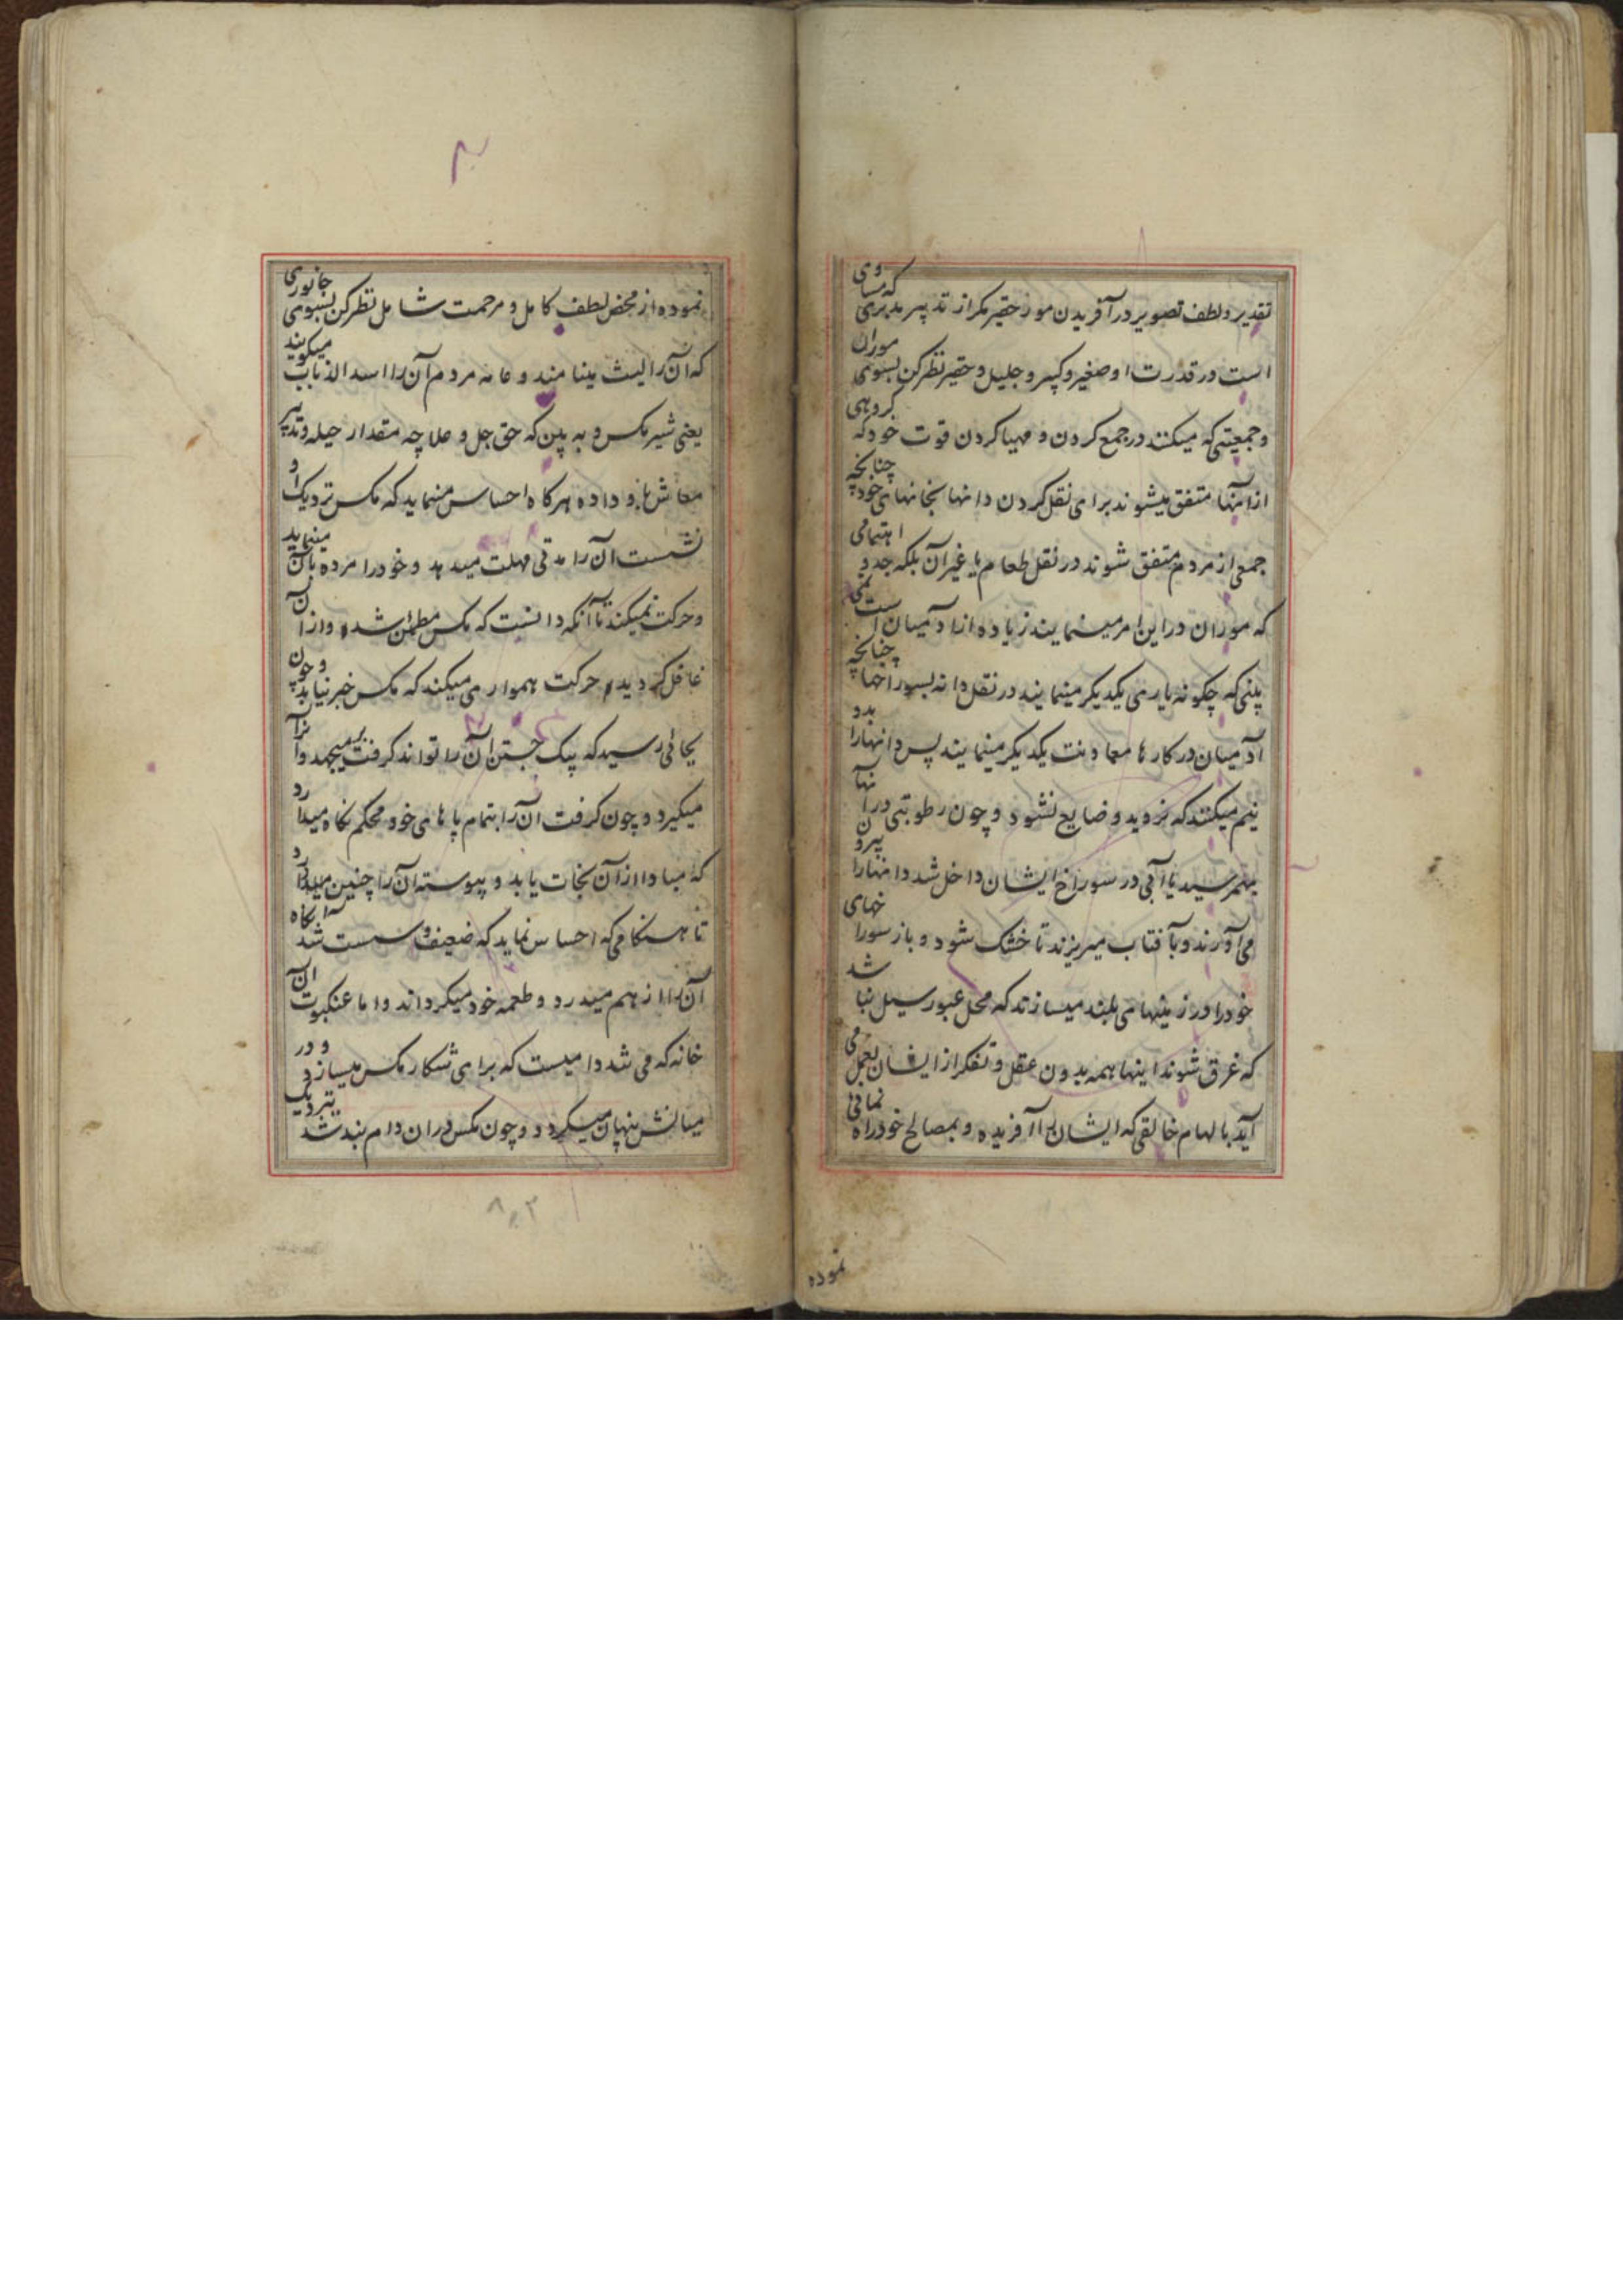 تقدیر و لطف تصویر در آفریدن مور حقیر مگر از تدبیر مدبری که مساوی
است در قدرت او صغیر و کبیر و جلیل و حقیر نظر کن بسوی موران
و جمعیتی که میکنند در جمع کردن و مهیا کردن قوت خود که گروهی
از آنها متفق میشوند برای نقل کردن دانها بخانهای خود چنانچه
جمعی از مردم متفق شوند در نقل طعام یا غیر آن بلکه جد و اهتمامی
که موران در این امر مینمایند زیاده از آدمیان است نمی
بینی که چگونه یاری یکدیگر مینمایند در نقل دانه بسوراخها چنانچه
آدمیان در کارها معاونت یکدیگر مینمایند پس دانهارا بدو
نیم میکنند که نروید و ضایع نشود و چون رطوبتی در آنها
بهمرسید یا آبی در سوراخ ایشان داخل شد دانهارا بیرون
می آورند و بآفتاب میریزند تا خشک شود و باز سوراخهای
خود را در زمینهای بلند میسازند که محل عبور سیل نباشد
که غرق شوند اینها همه بدون عقل و تفکر از ایشان بعمل می
آید بالهام خالقی که ایشان را آفریده و بمصالح خود راه نمائی
نموده
نموده از محض لطف کامل و مرحمت شامل نظر کن بسوی جانوری
که آن را لیث مینامند و عامه مردم آن را اسد الذباب میگویند
یعنی شیر مکس و به بین که حق جل و علا چه مقدار حیله و تدبیر
معاش باو داده هر گاه احساس مینماید که مکس نزدیک او
نشست آن را مدتی مهلت میدهد و خود را مرده بآن مینماید
و حرکت نمیکند تا آنکه دانست که مکس مطمئن شده و از آن
غافل گردیده حرکت همواری میکند که مکس خبر نیابد و چون
بجائی رسید که بیک جستن آن را تواند گرفت بر میجهد و آنرا
میگیرد و چون گرفت آن را بتمام پاهای خود محکم نگاه میدارد
که مبادا از آن نجات یابد و پیوسته آن را چنین میدارد
تا هنگامی که احساس نماید که ضعیف و سست شد آنگاه
آن را از هم میدرد و طعمه خود میگرداند و اما عنکبوت آن
خانه که می تند دامیست که برای شکار مکس میسازد و در
میانش پنهان میگردد و چون مکس در آن دام بند شد نزدیک